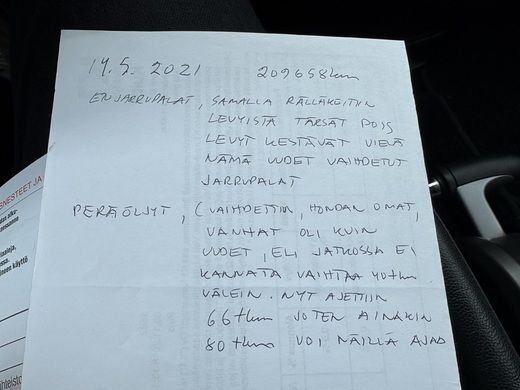 19.5. 2021 209658km
ETUJARRUPALAT, SAMALLA RÄLLÄKÖITIIN
LEVYISTÄ TÄRSÄT POIS
LEVYT KESTÄVÄT VIELÄ
NÄMÄ UUDET VAIHDETUT
JARRUPALAT
PERÄÖLJYT, (VAIHDETTIIN, HONDAN OMAT,
VANHAT OLI KUIN
UUDET, ELI JATKOSSA EI
KANNATA VAIHTAA 40tkm
VÄLEIN. NYT AJETTIIN
66tkm JOTEN AINAKIN
80tkm VOI NÄILLÄ AJAA
SNESTEET JA